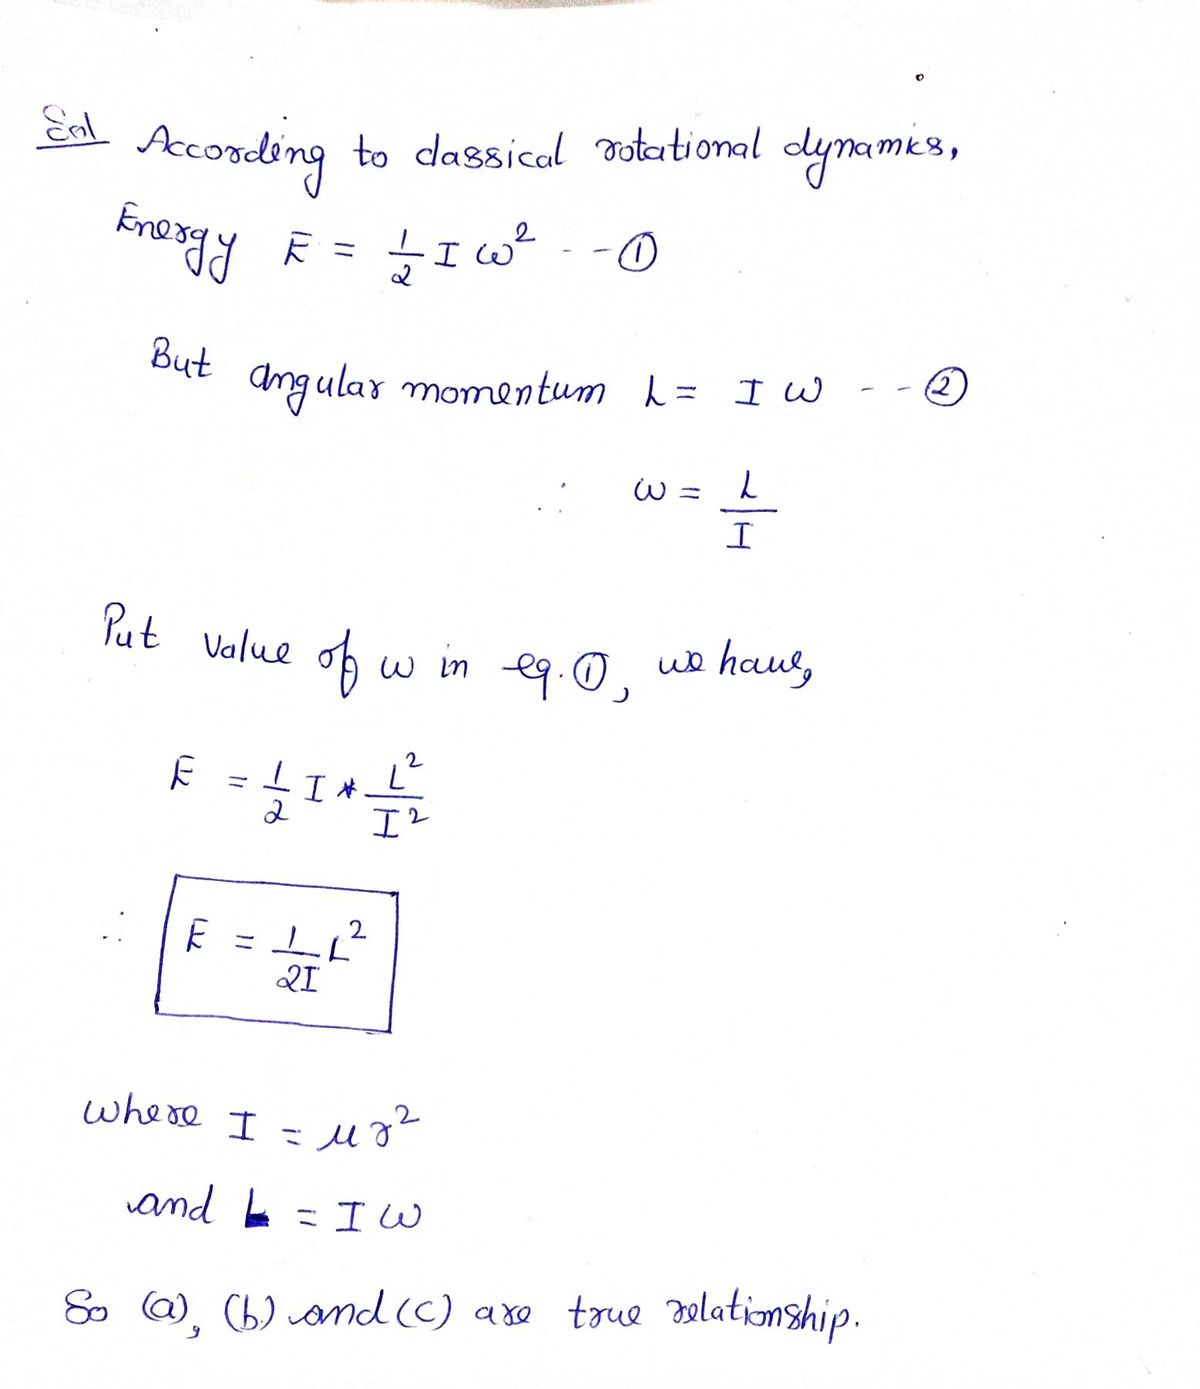 Sol According to classical rotational dynamics,
Energy E = 1/2 I ω² - - ①
But angular momentum L = I ω - - ②
∴ ω = L/I
Put value of ω in eq. ①, we have,
E = 1/2 I * L²/I²
∴ E = 1/2I L²
where I = μr²
and L = I ω
So (a), (b) and (c) are true relationship.